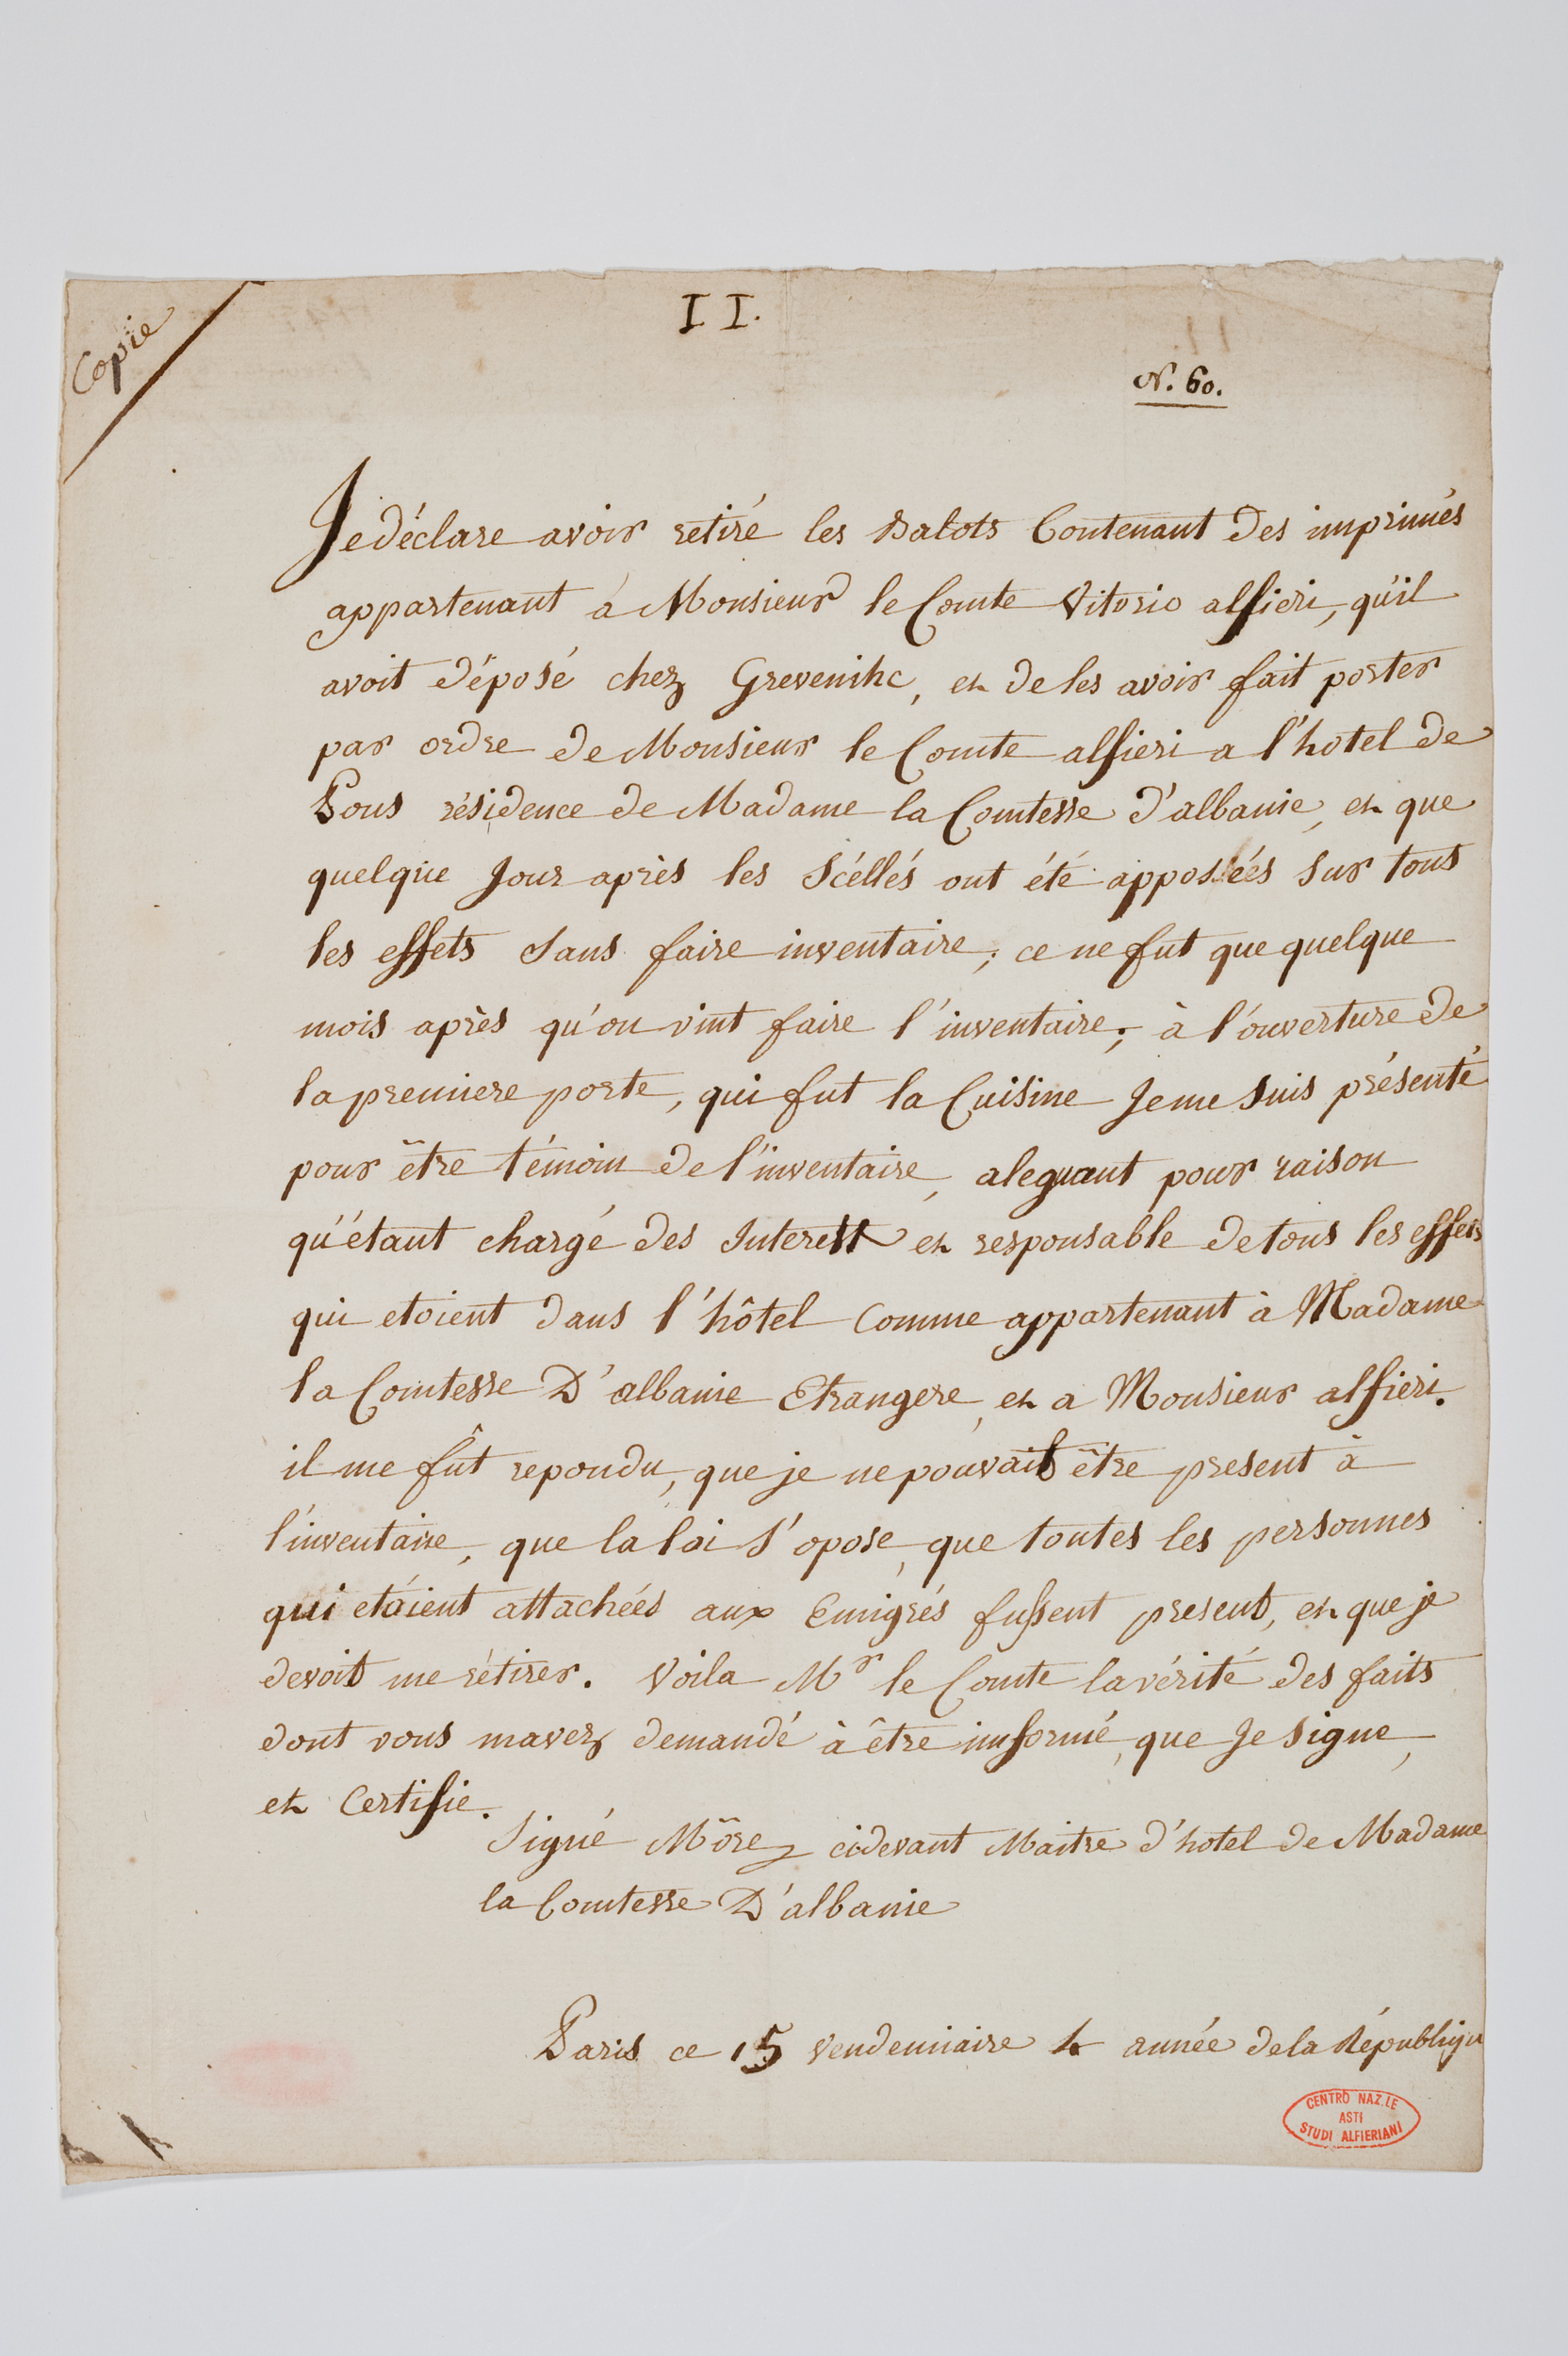 Copie
II.
N. 60.
Je déclare avoir retiré les Balots Contenant des imprimés
appartenant à Monsieur le Comte Vitorio alfieri, qu'il
avoit déposé chez Grevenihc, et de les avoir fait porter
par ordre de Monsieur le Comte alfieri a l'hotel de
Pons résidence de Madame la Comtesse d'albanie, et que
quelque Jour après les Scéllés ont été apposées sur tous
les effets sans faire inventaire; ce ne fut que quelque
mois après qu'on vint faire l'inventaire; à l'ouverture de
la premiere porte, qui fut la Cuisine Je me suis présenté
pour être témoin de l'inventaire, aleguant pour raison
qu'étant chargé des Interest et responsable de tous les effets
qui etoient dans l'hôtel comme appartenant à Madame
la Comtesse D'albanie Etrangere, et a Monsieur alfieri.
il me fût repondu, que je ne pouvais être present à
l'inventaire, que la loi s'opose, que toutes les personnes
qui etáient attachéés aux Emigrés fussent present, et que je
devois me rétirer. Voila Mr le Comte la vérité des faits
dont vous mavez demandé à être informé, que Je signe,
et Certifie.
Signé Môre cidevant Maitre d'hotel de Madame
la Comtesse D'albanie
Paris ce 15 Vendemiaire 4 année de la Républiqu
CENTRO NAZ.LE
ASTI
STUDI ALFIERIANI